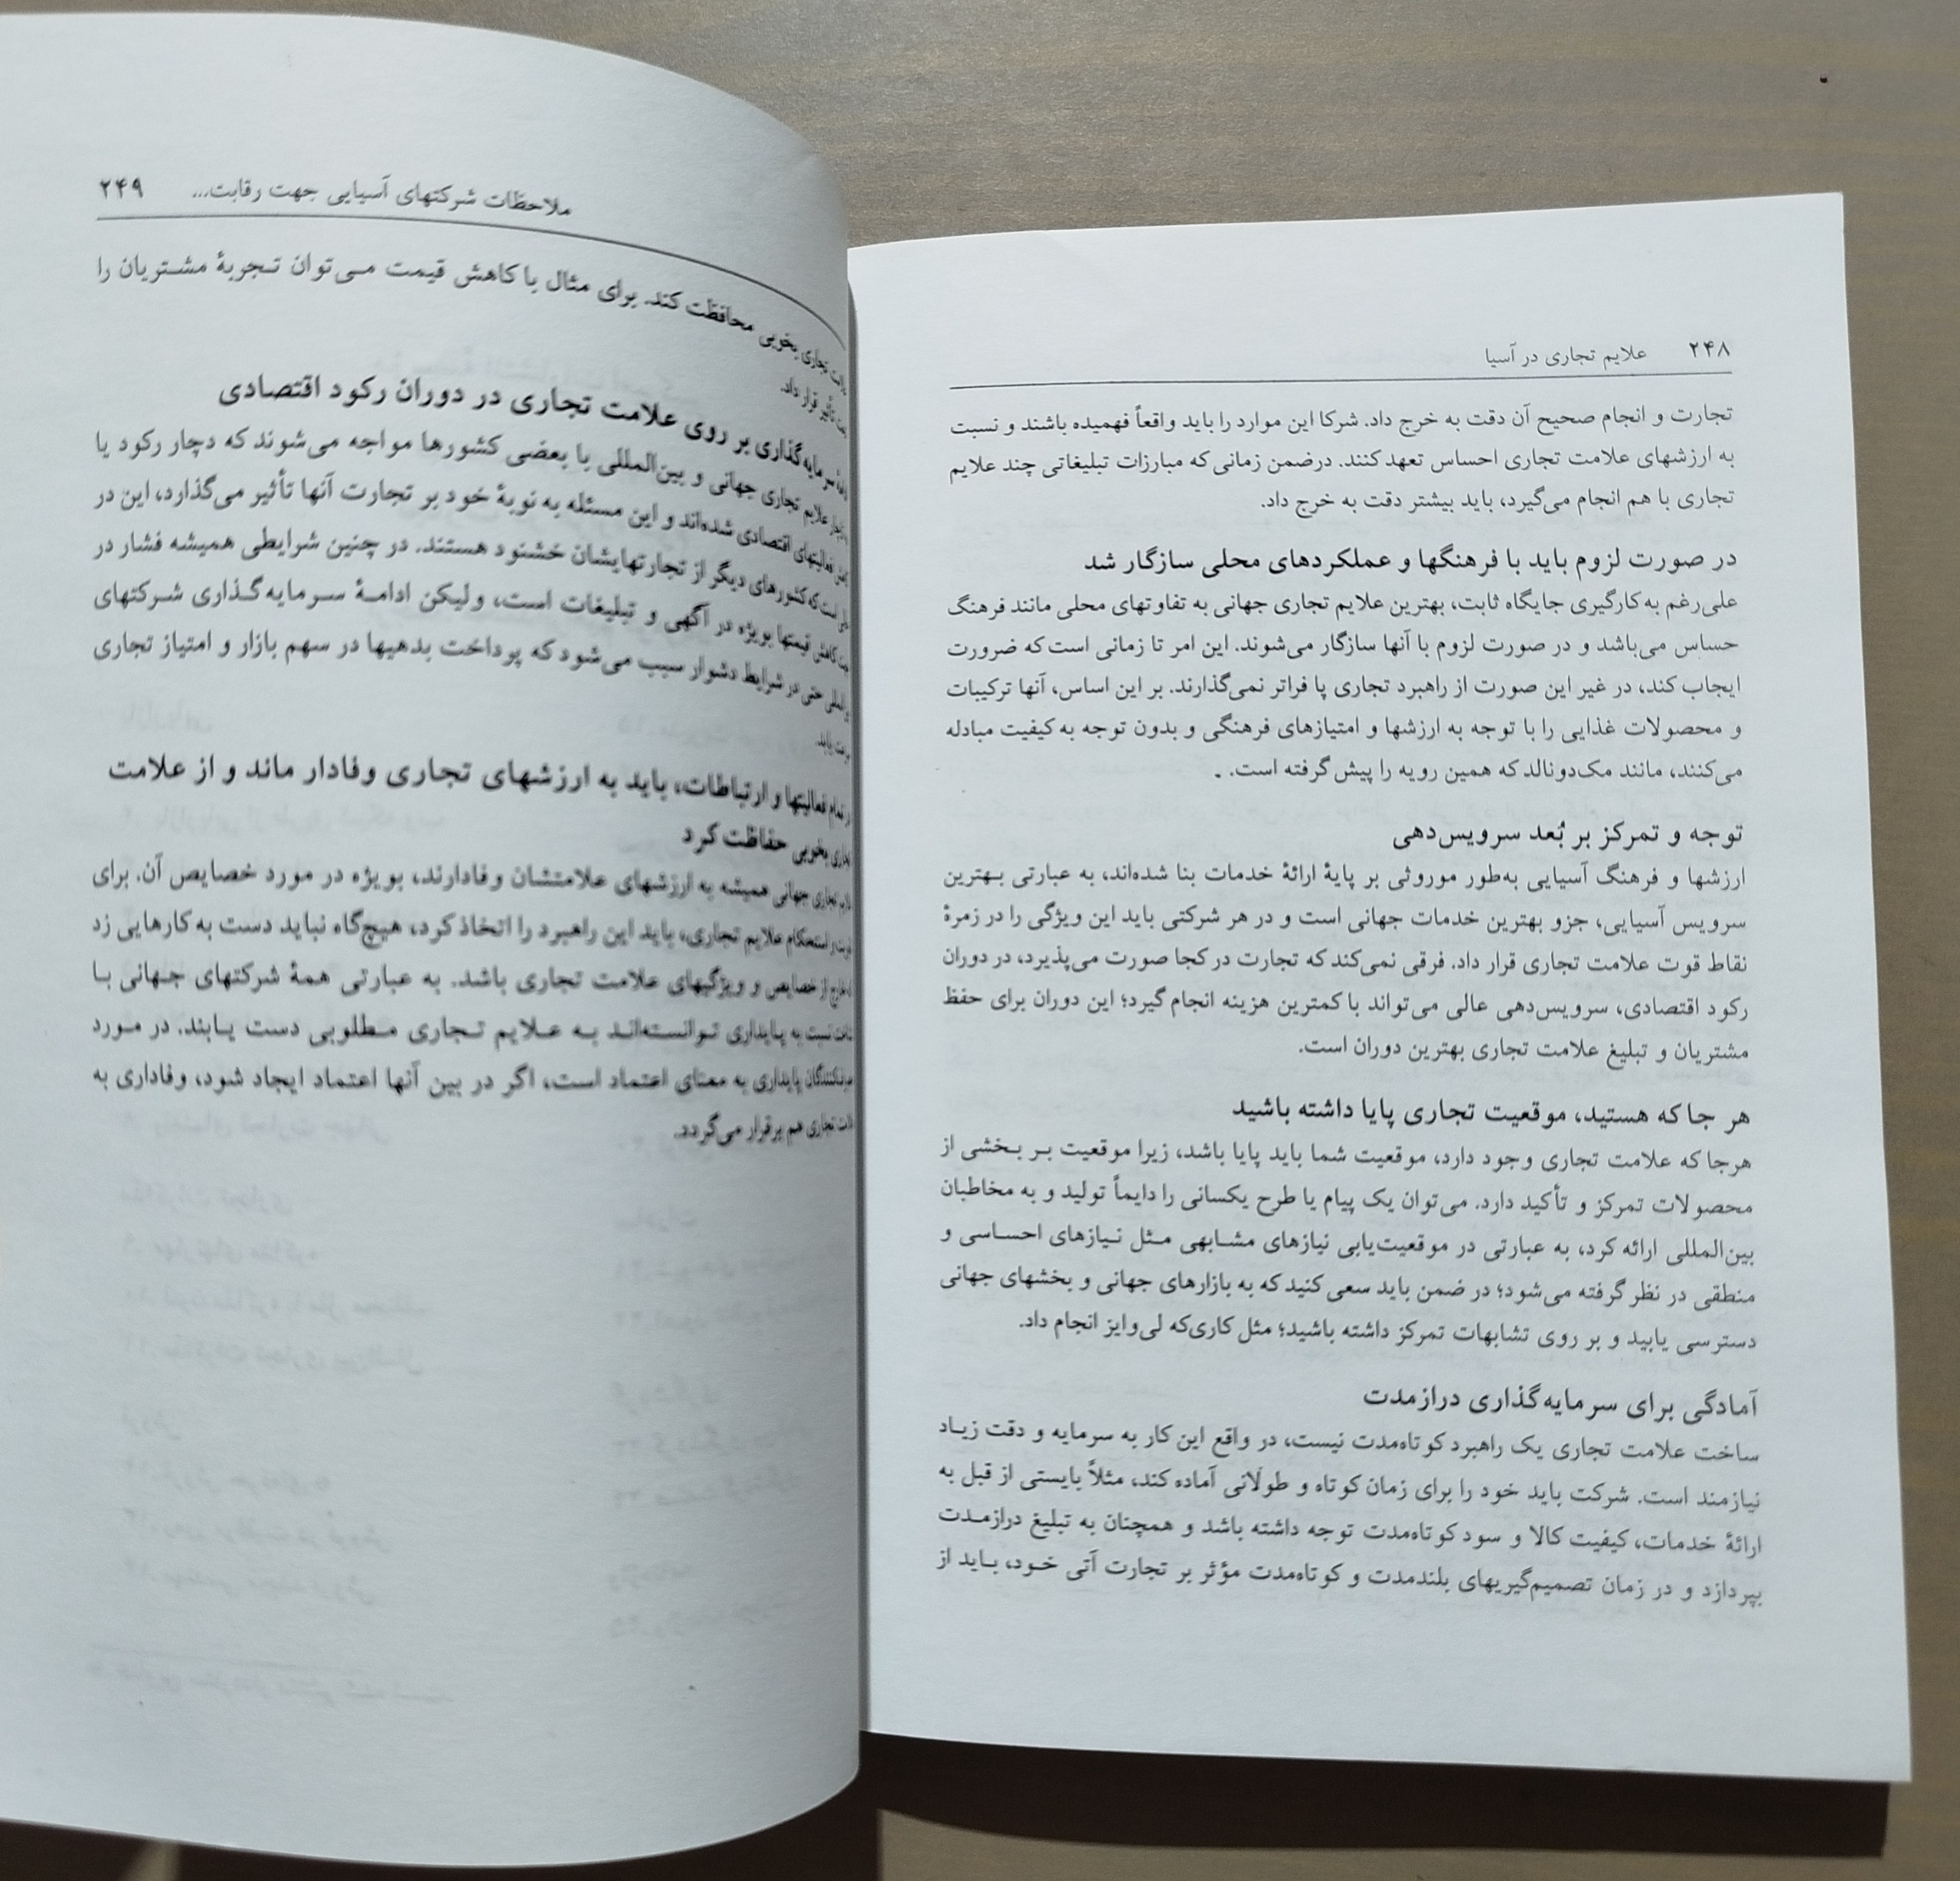 ۲۴۸ علایم تجاری در آسیا
تجارت و انجام صحیح آن دقت به خرج داد. شرکا این موارد را باید واقعاً فهمیده باشند و نسبت
به ارزشهای علامت تجاری احساس تعهد کنند. درضمن زمانی که مبارزات تبلیغاتی چند علایم
تجاری با هم انجام می‌گیرد، باید بیشتر دقت به خرج داد.
در صورت لزوم باید با فرهنگها و عملکردهای محلی سازگار شد
علی‌رغم به‌کارگیری جایگاه ثابت، بهترین علایم تجاری جهانی به تفاوتهای محلی مانند فرهنگ
حساس می‌باشد و در صورت لزوم با آنها سازگار می‌شوند. این امر تا زمانی است که ضرورت
ایجاب کند، در غیر این صورت از راهبرد تجاری پا فراتر نمی‌گذارند. بر این اساس، آنها ترکیبات
و محصولات غذایی را با توجه به ارزشها و امتیازهای فرهنگی و بدون توجه به کیفیت مبادله
می‌کنند، مانند مک‌دونالد که همین رویه را پیش گرفته است.
توجه و تمرکز بر بُعد سرویس‌دهی
ارزشها و فرهنگ آسیایی به‌طور موروثی بر پایهٔ ارائهٔ خدمات بنا شده‌اند، به عبارتی بهترین
سرویس آسیایی، جزو بهترین خدمات جهانی است و در هر شرکتی باید این ویژگی را در زمرهٔ
نقاط قوت علامت تجاری قرار داد. فرقی نمی‌کند که تجارت در کجا صورت می‌پذیرد، در دوران
رکود اقتصادی، سرویس‌دهی عالی می‌تواند با کمترین هزینه انجام گیرد؛ این دوران برای حفظ
مشتریان و تبلیغ علامت تجاری بهترین دوران است.
هر جا که هستید، موقعیت تجاری پایا داشته باشید
هرجا که علامت تجاری وجود دارد، موقعیت شما باید پایا باشد، زیرا موقعیت بر بخشی از
محصولات تمرکز و تأکید دارد. می‌توان یک پیام یا طرح یکسانی را دایماً تولید و به مخاطبان
بین‌المللی ارائه کرد، به عبارتی در موقعیت‌یابی نیازهای مشابهی مثل نیازهای احساسی و
منطقی در نظر گرفته می‌شود؛ در ضمن باید سعی کنید که به بازارهای جهانی و بخشهای جهانی
دسترسی یابید و بر روی تشابهات تمرکز داشته باشید؛ مثل کاری‌که لی‌وایز انجام داد.
آمادگی برای سرمایه‌گذاری درازمدت
ساخت علامت تجاری یک راهبرد کوتاه‌مدت نیست، در واقع این کار به سرمایه و دقت زیاد
نیازمند است. شرکت باید خود را برای زمان کوتاه و طولانی آماده کند، مثلاً بایستی از قبل به
ارائهٔ خدمات، کیفیت کالا و سود کوتاه‌مدت توجه داشته باشد و همچنان به تبلیغ درازمدت
بپردازد و در زمان تصمیم‌گیریهای بلندمدت و کوتاه‌مدت مؤثر بر تجارت آتی خود، باید از
ملاحظات شرکتهای آسیایی جهت رقابت... ۲۴۹
تجاری بخوبی محافظت کند. برای مثال با کاهش قیمت می‌توان تجربهٔ مشتریان را
تأثیر قرار داد.
سرمایه‌گذاری بر روی علامت تجاری در دوران رکود اقتصادی
علایم تجاری جهانی و بین‌المللی با بعضی کشورها مواجه می‌شوند که دچار رکود یا
فعالیتهای اقتصادی شده‌اند و این مسئله به نوبهٔ خود بر تجارت آنها تأثیر می‌گذارد، این در
است که کشورهای دیگر از تجارتهایشان خشنود هستند. در چنین شرایطی همیشه فشار در
کاهش قیمتها بویژه در آگهی و تبلیغات است، ولیکن ادامهٔ سرمایه‌گذاری شرکتهای
حتی در شرایط دشوار سبب می‌شود که پرداخت بدهیها در سهم بازار و امتیاز تجاری
یابد.
تمام فعالیتها و ارتباطات، باید به ارزشهای تجاری وفادار ماند و از علامت
بخوبی حفاظت کرد
تجاری جهانی همیشه به ارزشهای علامتشان وفادارند، بویژه در مورد خصایص آن. برای
استحکام علایم تجاری، باید این راهبرد را اتخاذ کرد، هیچ‌گاه نباید دست به کارهایی زد
از خصایص و ویژگیهای علامت تجاری باشد. به عبارتی همهٔ شرکتهای جهانی با
نسبت به پایداری توانسته‌اند به علایم تجاری مطلوبی دست یابند. در مورد
پایداری به معنای اعتماد است، اگر در بین آنها اعتماد ایجاد شود، وفاداری به
تجاری هم برقرار می‌گردد.